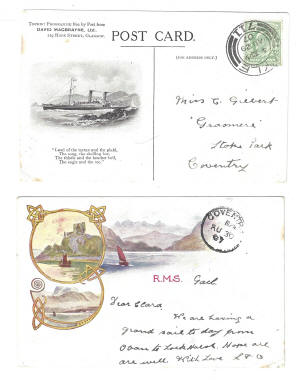 TOURIST PROGRAMME free by Post from
DAVID MACBRAYNE, LTD.
119 HOPE STREET, GLASGOW.
POST CARD.
(FOR ADDRESS ONLY.)
"Land of the tartan and the plaid,
The song, the skirling lay,
The thistle and the heather bell,
The eagle and the roe."
Miss C. Gilbert
"Grasmere"
Stoke Park
Coventry
COVENTRY
AU 30
07
R.M.S. Gael
Dear Clara.
We are having a
grand sail to day from
Oban to Loch
Hope all
are well. With Love